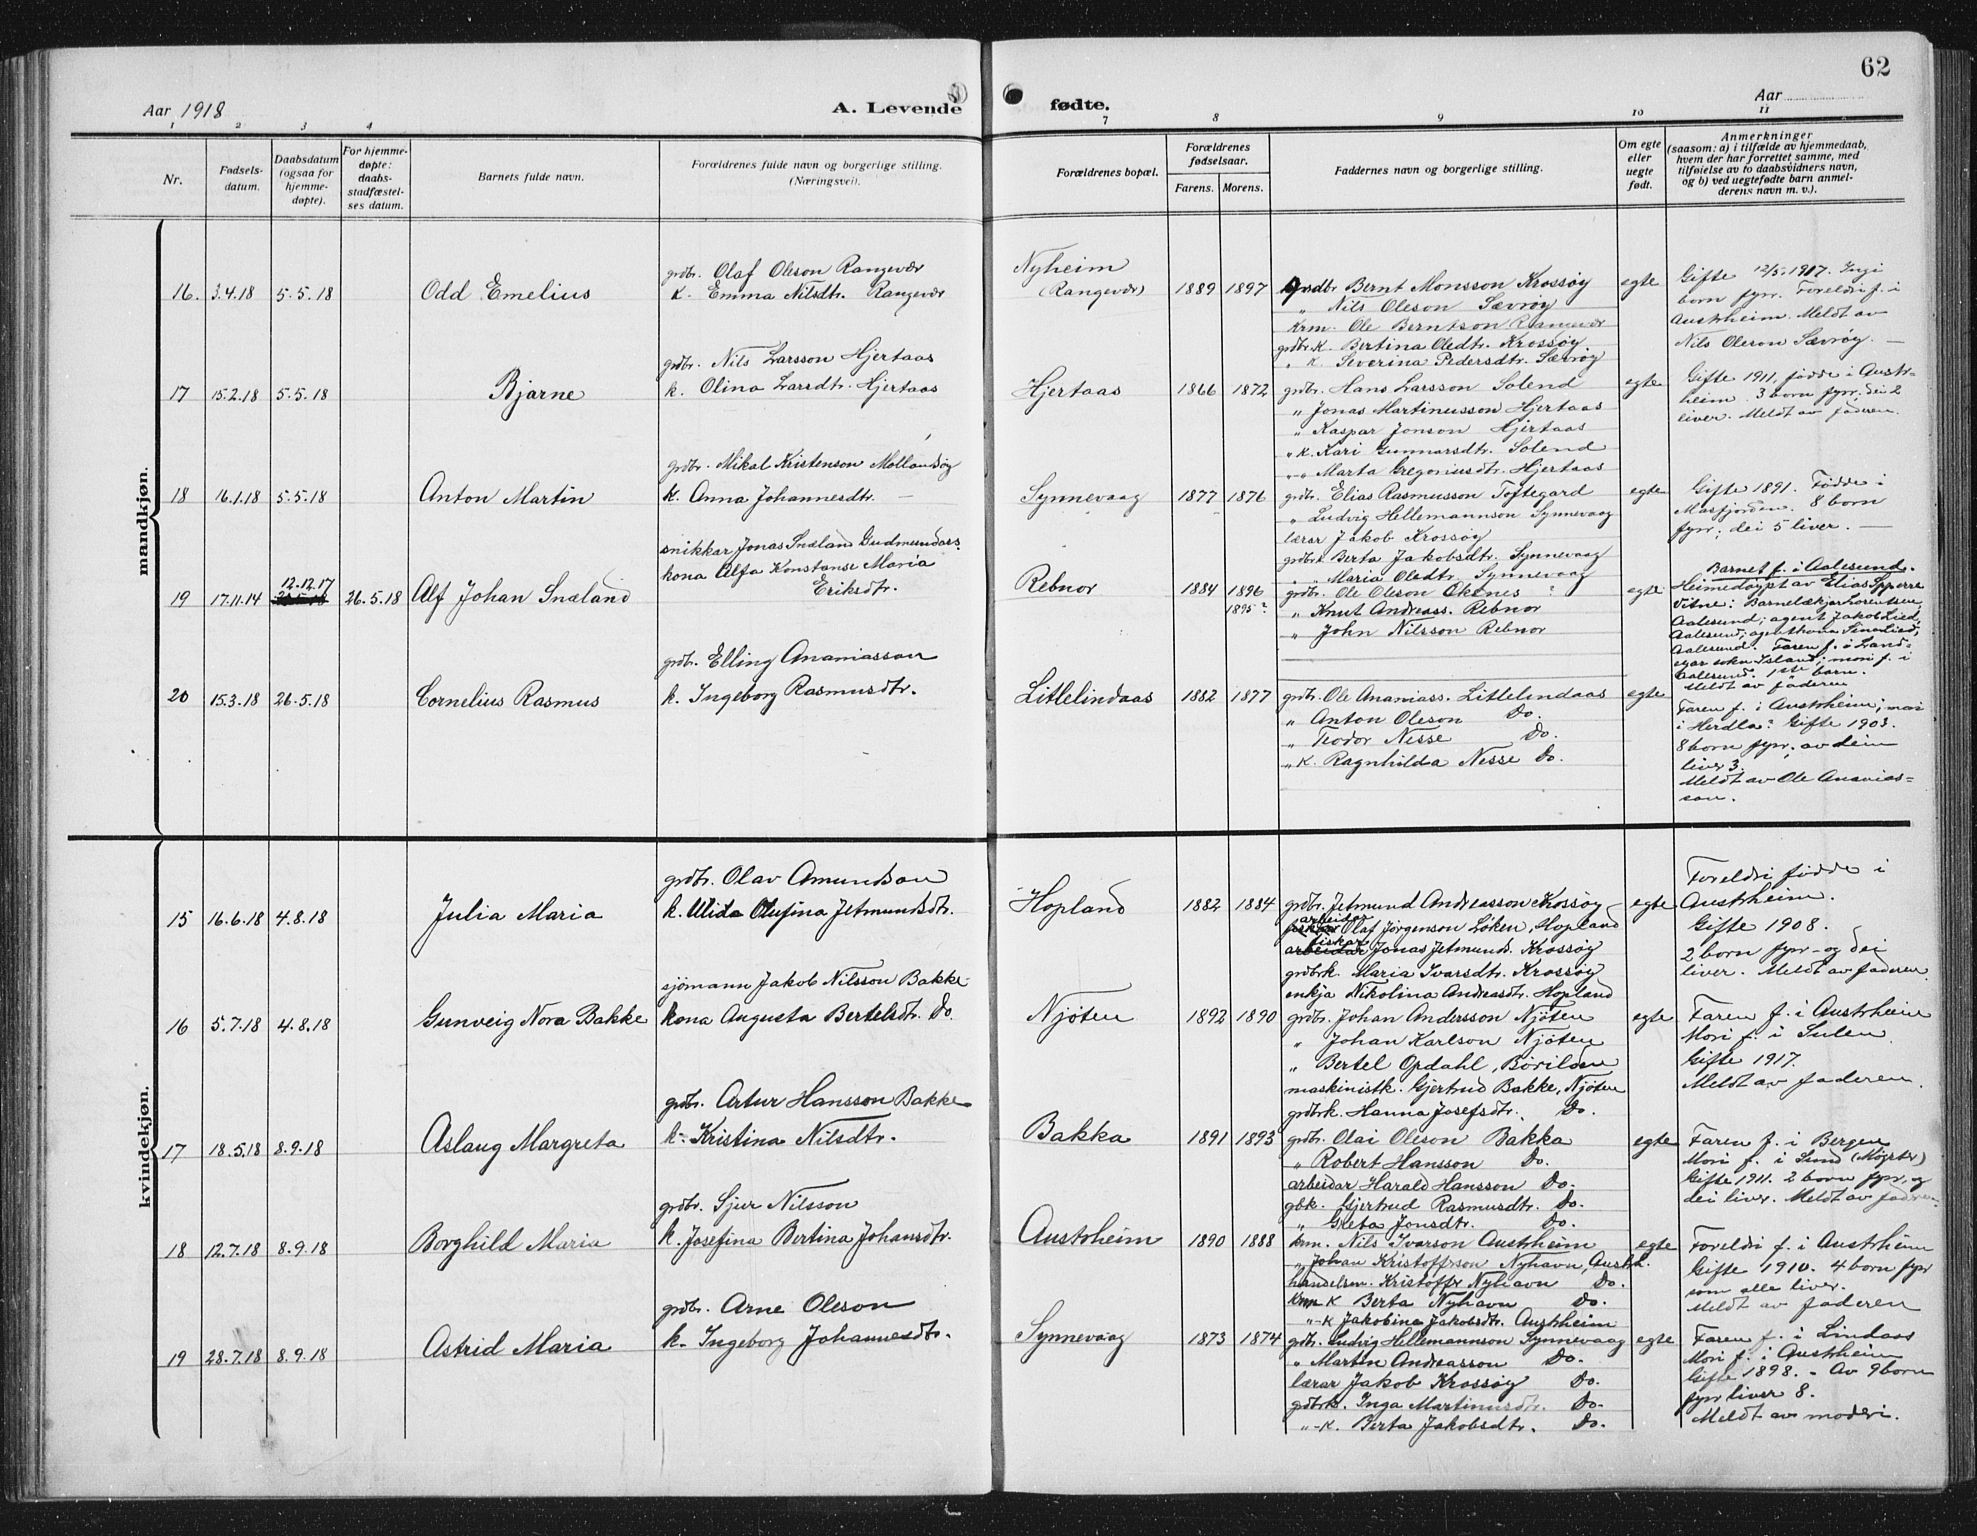 62
Aar 1918
A. Levende
fødte.
Aar
1 2 3 4
7 8 9 10 11
Nr.
Fødsels-
datum.
Daabsdatum
(ogsaa for
hjemme-
døpte).
For hjemme-
døpte:
daabs-
stadfæstel-
ses datum.
Barnets fulde navn.
Forældrenes fulde navn og borgerlige stilling.
(Næringsvei).
Forældrenes bopæl.
Forældrenes
fødselsaar.
Farens. Morens.
Faddernes navn og borgerlige stilling.
Om egte
eller
uegte
født.
Anmerkninger
(saasom: a) i tilfælde av hjemmedaab,
hvem der har forrettet samme, med
tilføielse av to daabsvidners navn,
og b) ved uegtefødte barn anmel-
derens navn m. v.).
mandkjøn.
16. 3.4.18 5.5.18
Odd Emelius
grdbr. Olaf Oleson Rangevær
k. Emma Nilsdtr. Rangevær
Nyheim
(Rangevær)
1889 1897
Grdbr Bernt Monsson Krossøy
„ Nils Oleson Sævrøy
Krm. Ole Berntson Rangevær
grdbr.k. Bertina Oledtr. Krossøy
„ k. Severina Pedersdtr. Sævrøy
egte
Gifte 12/5 1917. Ingi
born fyrr. Foreldri f. i
Austrheim. Meldt av
Nils Oleson Sævrøy. —
17 15.2.18 5.5.18
Bjarne
grdbr. Nils Larsson Hjertaas
k. Olina Larsdtr. Hjertaas
Hjertaas
1866 1872
grdbr. Hans Larsson Solend
„ Jonas Martinusson Hjertaas
„ Kaspar Jonson Hjertaas
„ k. Kari Gunnarsdtr. Solend
„ - „ Marta Gregoriusdtr. Hjertaas
egte
Gifte 1911, fødde i Austr-
heim. 3 born fyrr. dei 2
liver. Meldt av faderen.
18 16.1.18 5.5.18
Anton Martin
grdbr. Mikal Kristenson Mollandsøy
k. Anna Johannesdtr. —
Synnevaag
1877 1876
grdbr. Elias Rasmusson Toftegard
„ Ludvig Hellemannson Synnevaag
lærar Jakob Krossøy
grdbr. Berta Jakobsdtr. Synnevaag
„ „ Maria Oledtr. Synnevaag
egte
Gifte 1891. Fødde i
Masfjorden. 8 born
fyrr; dei 5 liver. —
19 17.11.14 12.12.17 26.5.18
Alf Johan Snæland
snikkar Jonas Snæland Gudmundars.
kona Alfa Konstanse Maria
Eriksdtr.
Rebnor
1884 1896
1895?
grdbr. Ole Oleson Okenes
„ Knut Andreass. Rebnor
„ John Nilsson Rebnor
egte
Barnet f. i Aalesund.
Heimedøypt av Elias Sperre
Vitne: Barnelækjar Lorentsen,
Aalesund; agent Jakob Lied,
Aalesund; agentkona Sina Lied,
Aalesund. Faren f. i Land-
eyar sokn Island; mori f. i
Aalesund. 1ste barn.
Meldt av faderen
20 15.3.18 26.5.18
Cornelius Rasmus
grdbr. Elling Ananiasson
k. Ingeborg Rasmusdtr.
Litlelindaas
1882 1877
grdbr. Ole Ananiass. Litlelindaas
„ Anton Oleson Do.
„ Teodor Nesse Do.
„ k. Ragnhilda Nesse Do.
egte
Faren f. i Austrheim; mori
i Herdla? Gifte 1903.
8 born fyrr, av deim
liver 3.
Meldt av Ole Ananias-
son.
kvindekjøn.
15 16.6.18 4.8.18
Julia Maria
grdbr. Olav Amundson
k. Alida Olufina Jetmundsdtr.
Hopland
1882 1884
grdbr. Jetmund Andreasson Krossøy
arbeidar
fiskar Olaf Jørgenson Løken, Hopland
fiskar
arbeidar Jonas Jetmunds. Krossøy
grdbrk. Maria Ivarsdtr. Krossøy
enkja Nikolina Andreasdtr. Hopland
egte
Foreldri fødde i
Austrheim.
Gifte 1908.
2 born fyrr og dei
liver. Meldt av faderen.
16 5.7.18 4.8.18
Gunveig Nora Bakke
sjømann Jakob Nilsson Bakke
kona Augusta Bertelsdtr. Do.
Njøten
1892 1890
grdbr. Johan Andersson Njøten
„ Johan Karlson Njøten
„ Bertel Opdahl, Børilden
maskinistk. Gjertrud Bakke, Njøten
grdbrk. Hanna Josefsdtr. Do.
egte
Faren f. i Austrheim
Mori f. i Sulen.
Gifte 1917.
Meldt av faderen.
17 18.5.18 8.9.18
Aslaug Margreta
grdbr. Artur Hansson Bakke
k. Kristina Nilsdtr.
Bakka
1891 1893
grdbr. Olai Oleson Bakka
„ Robert Hansson Do.
arbeidar Harald Hansson Do.
gbk. Gjertrud Rasmusdtr. Do.
„ Greta Jonsdtr. Do.
egte
Faren f. i Bergen
Mori f. i Sund (Møgster)
Gifte 1911. 2 born fyrr, og
dei liver. Meldt av faderen.
18 12.7.18 8.9.18
Borghild Maria
grdbr. Sjur Nilsson
k. Josefina Bertina Johansdtr.
Austrheim
1890 1888
krm. Nils Ivarson Austrheim
„ Johan Kristoffrson Nyhavn, Austrh.
handelsm. Kristoffer Nyhavn Do.
krm k Berta Nyhavn Do.
„ -k Jakobine Jakobsdtr. Austrheim
egte
Foreldri f. i Austrheim
Gifte 1910. 4 born fyrr
som alle liver.
Meldt av faderen
19 28.7.18 8.9.18
Astrid Maria
grdbr. Arne Oleson
k. Ingeborg Johannesdtr.
Synnevaag
1873 1874
grdbr. Ludvig Hellemannson Synnevaag
„ Martin Andreasson Do.
lærar Jakob Krossøy Do.
grdbrk. Inga Martinusdtr. Do.
„ -k. Berta Jakobsdtr. Do.
egte
Faren f. i Lindaas
Mori f. i Austrheim
Gifte 1898. - Av 9 born
fyrr liver 8.
Meldt av moderi.